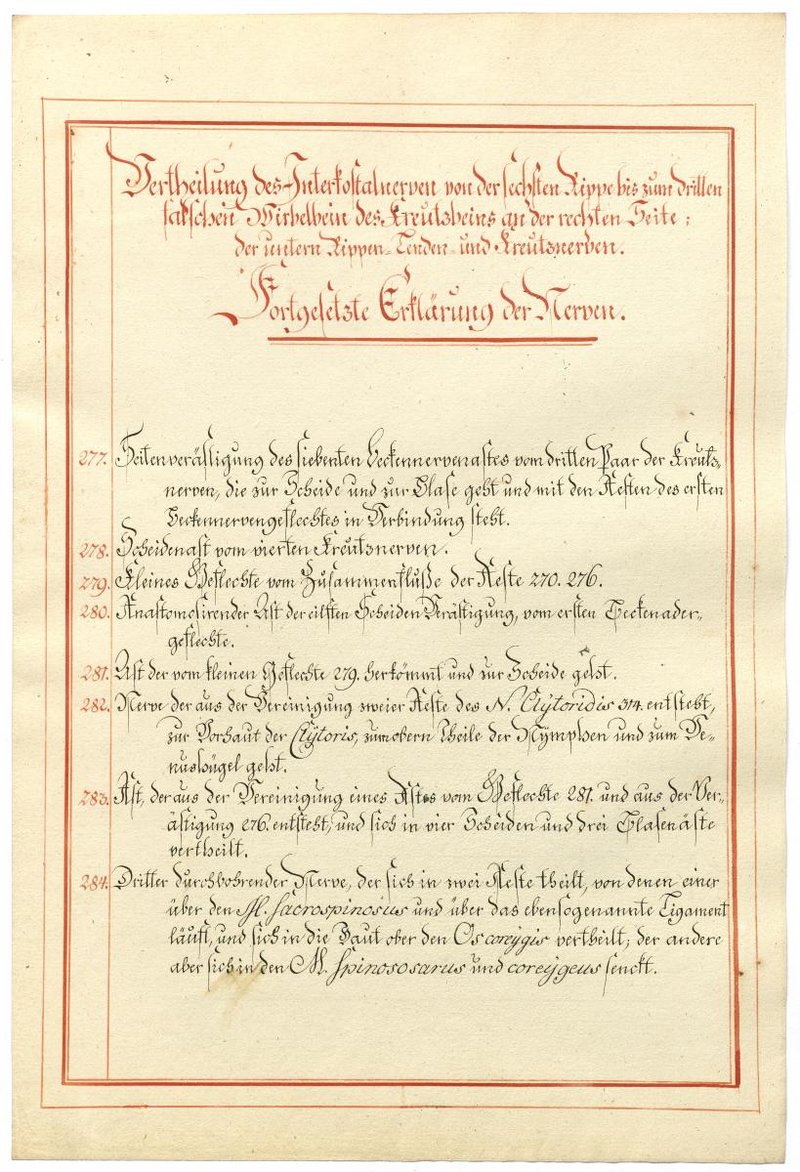 Vertheilung des Interkostalnerven von der sechsten Rippe bis zum drillen
falschen Wirbelbein des Kreutzbeins an der rechten Seite;
der untern Rippen- Lenden- und Kreutznerven.
Fortgesetzte Erklärung der Nerven.
277. Seitenverästigung des siebenten Beckennervenastes vom dritten Paar der Kreutz-
nerven, die zur Scheide und zur Blase geht und mit den Aesten des ersten
Beckennervengeflechtes in Verbindung steht.
278. Scheidenast vom vierten Kreutznerven.
279. Kleines Geflechte vom Zusammenfluße der Aeste 270. 276.
280. Anastomosirender Ast der eilften Scheiden Verästigung, vom ersten Beckenader-
geflechte.
281. Ast der vom kleinen Geflechte 279. herkömmt und zur Scheide geht.
282. Nerve der aus der Vereinigung zweier Aeste des N. Clÿtoridis 314. entsteht,
zur Vorhaut der Clÿtoris, zum obern Theile der Nÿmphen und zum Ve-
nushügel geht.
283. Ast, der aus der Vereinigung eines Astes vom Geflechte 281. und aus der Ver-
ästigung 276. entsteht, und sich in vier Scheiden und drei Blasenäste
vertheilt.
284. Dritter durchbohrender Nerve, der sich in zwei Aeste theilt, von denen einer
über den M. sacrospinosus und über das ebensogenannte Ligament
läuft, und sich in die Haut ober den Os coccÿgis vertheilt; der andere
aber sich in den M. Spinososacrus und coccÿgeus senckt.